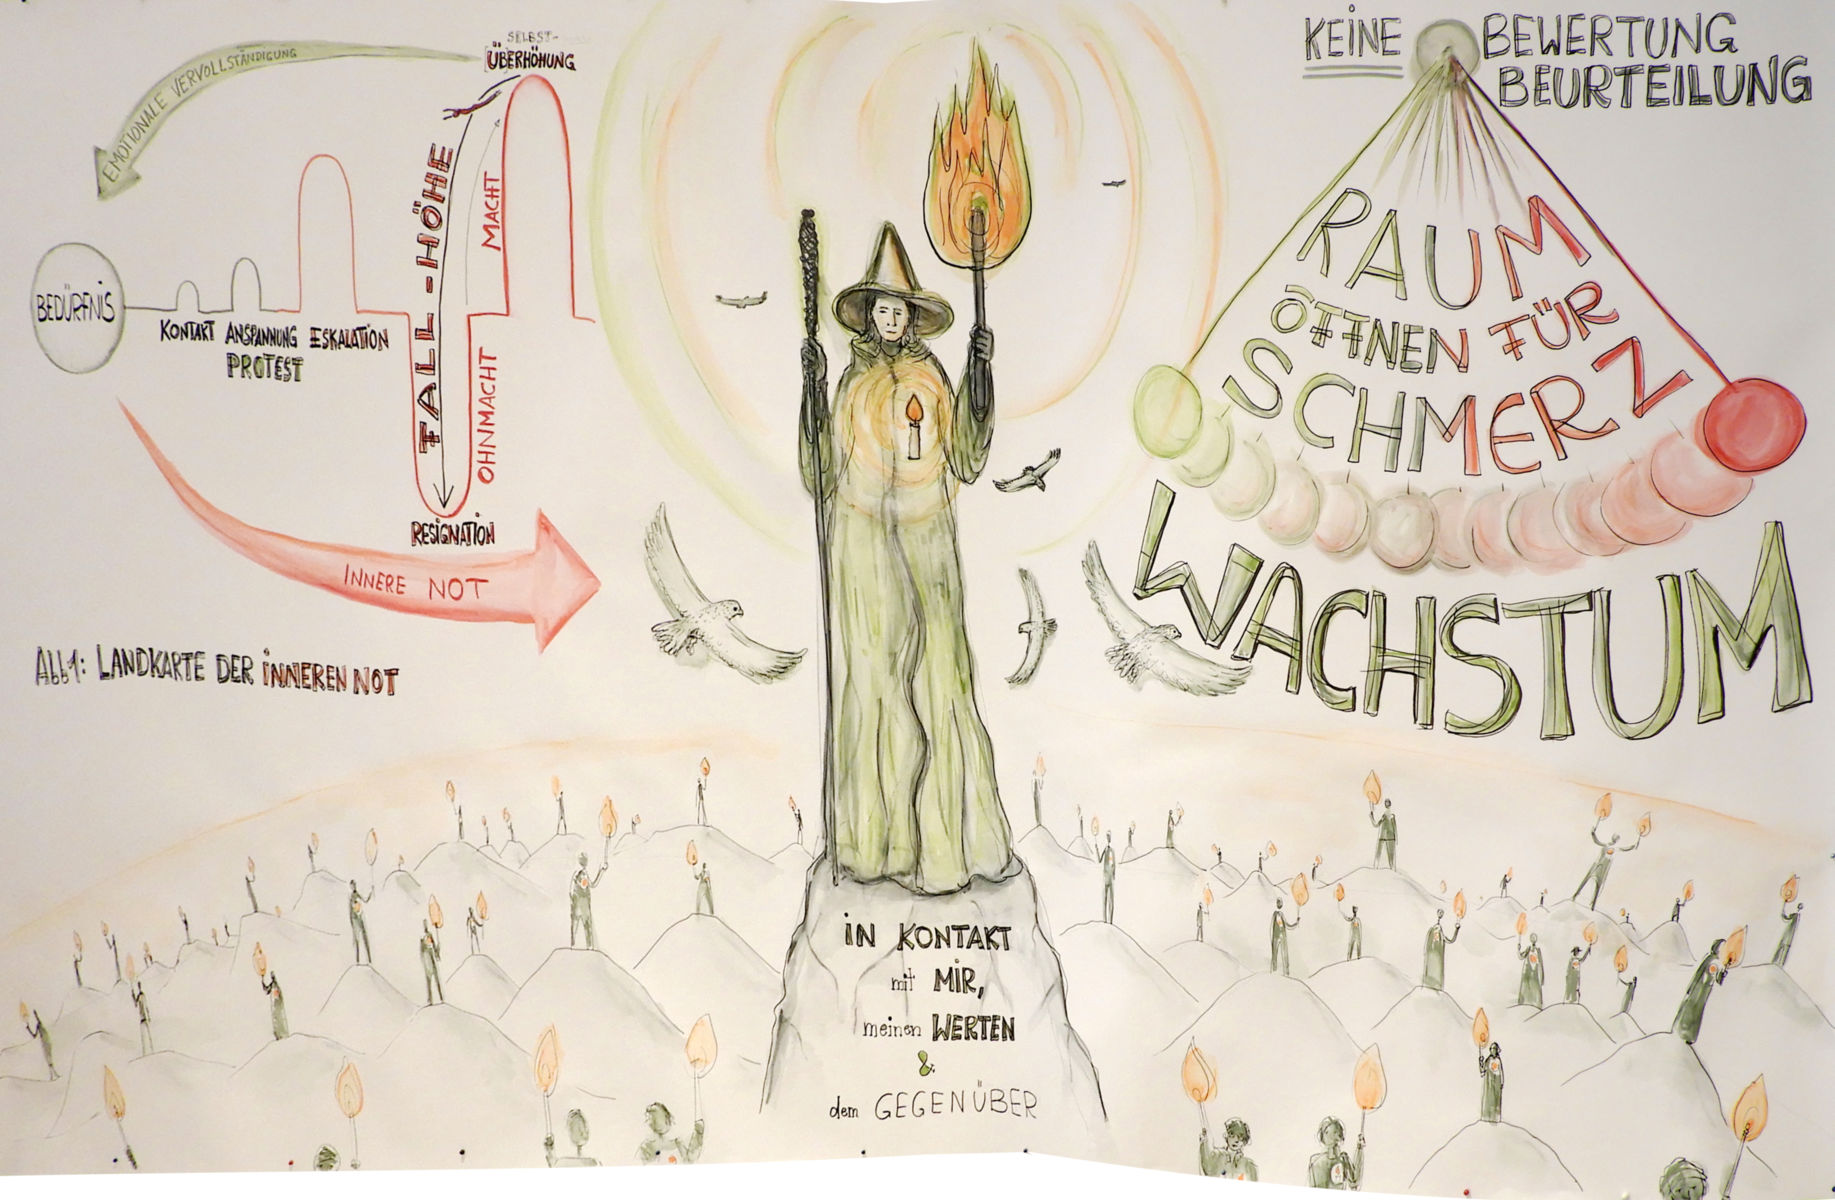 EMOTIONALE VERVOLLSTÄNDIGUNG
SELBST-
ÜBERHÖHUNG
FALL-HÖHE
MACHT
OHNMACHT
BEDÜRFNIS
KONTAKT ANSPANNUNG ESKALATION
PROTEST
RESIGNATION
INNERE NOT
Abb1: LANDKARTE DER INNEREN NOT
IN KONTAKT
mit MIR,
meinen WERTEN
&
dem GEGENÜBER
KEINE BEWERTUNG
BEURTEILUNG
RAUM
ÖFFNEN FÜR
SCHMERZ
WACHSTUM